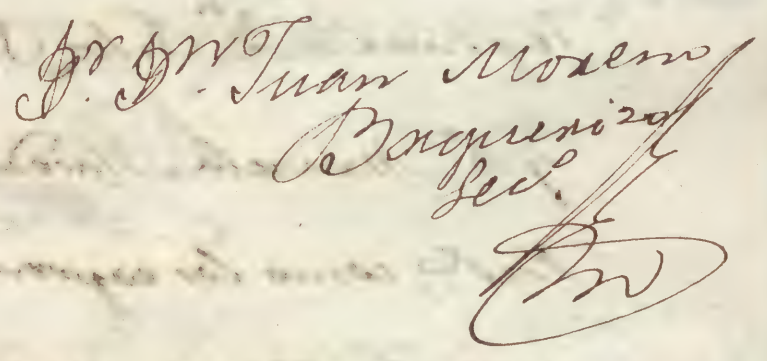 Dr. Dn. Juan Moreno
Baquerizo
Sec.o